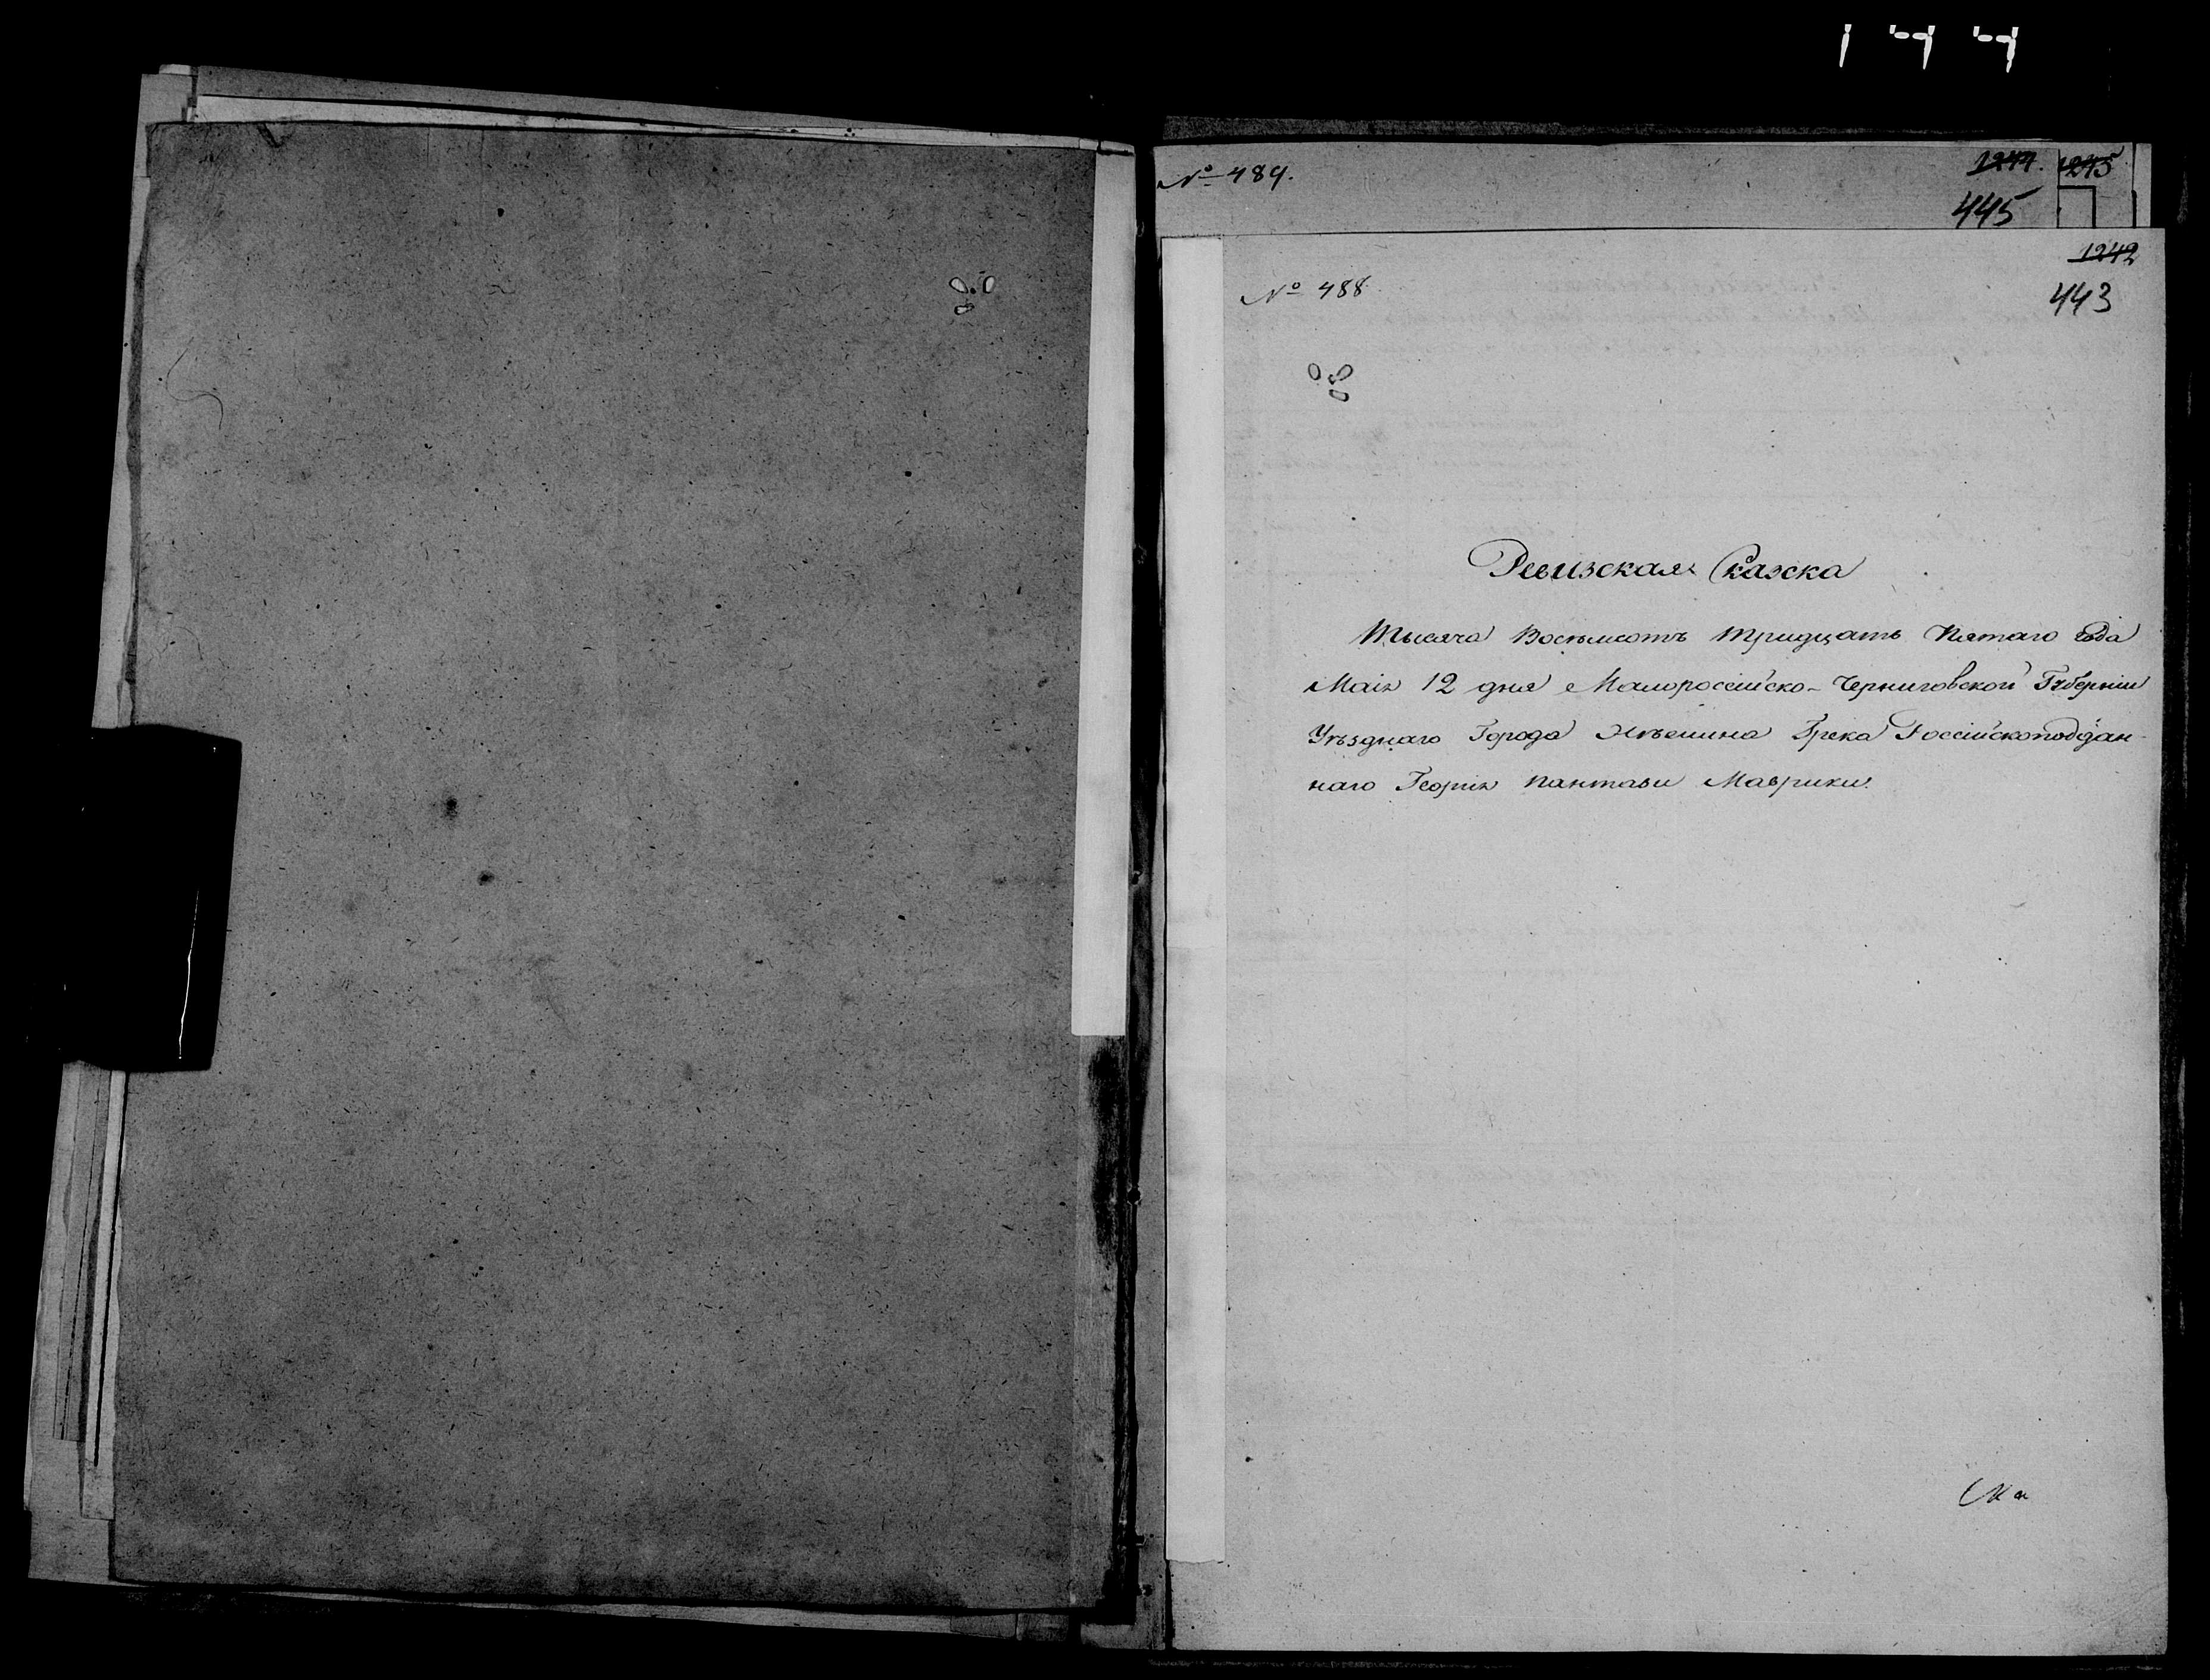 № 489.
1244. 1245
445
1242
№ 488.
443
Ревизская Сказка
Тысяча Восемсотъ тридцать Пятаго года
Маія 12 дня Малороссійско-Черниговской Губерніи
Уѣзднаго Города Нѣжина Грека Россійскоподдан-
наго Георгія Пантази Маврики.